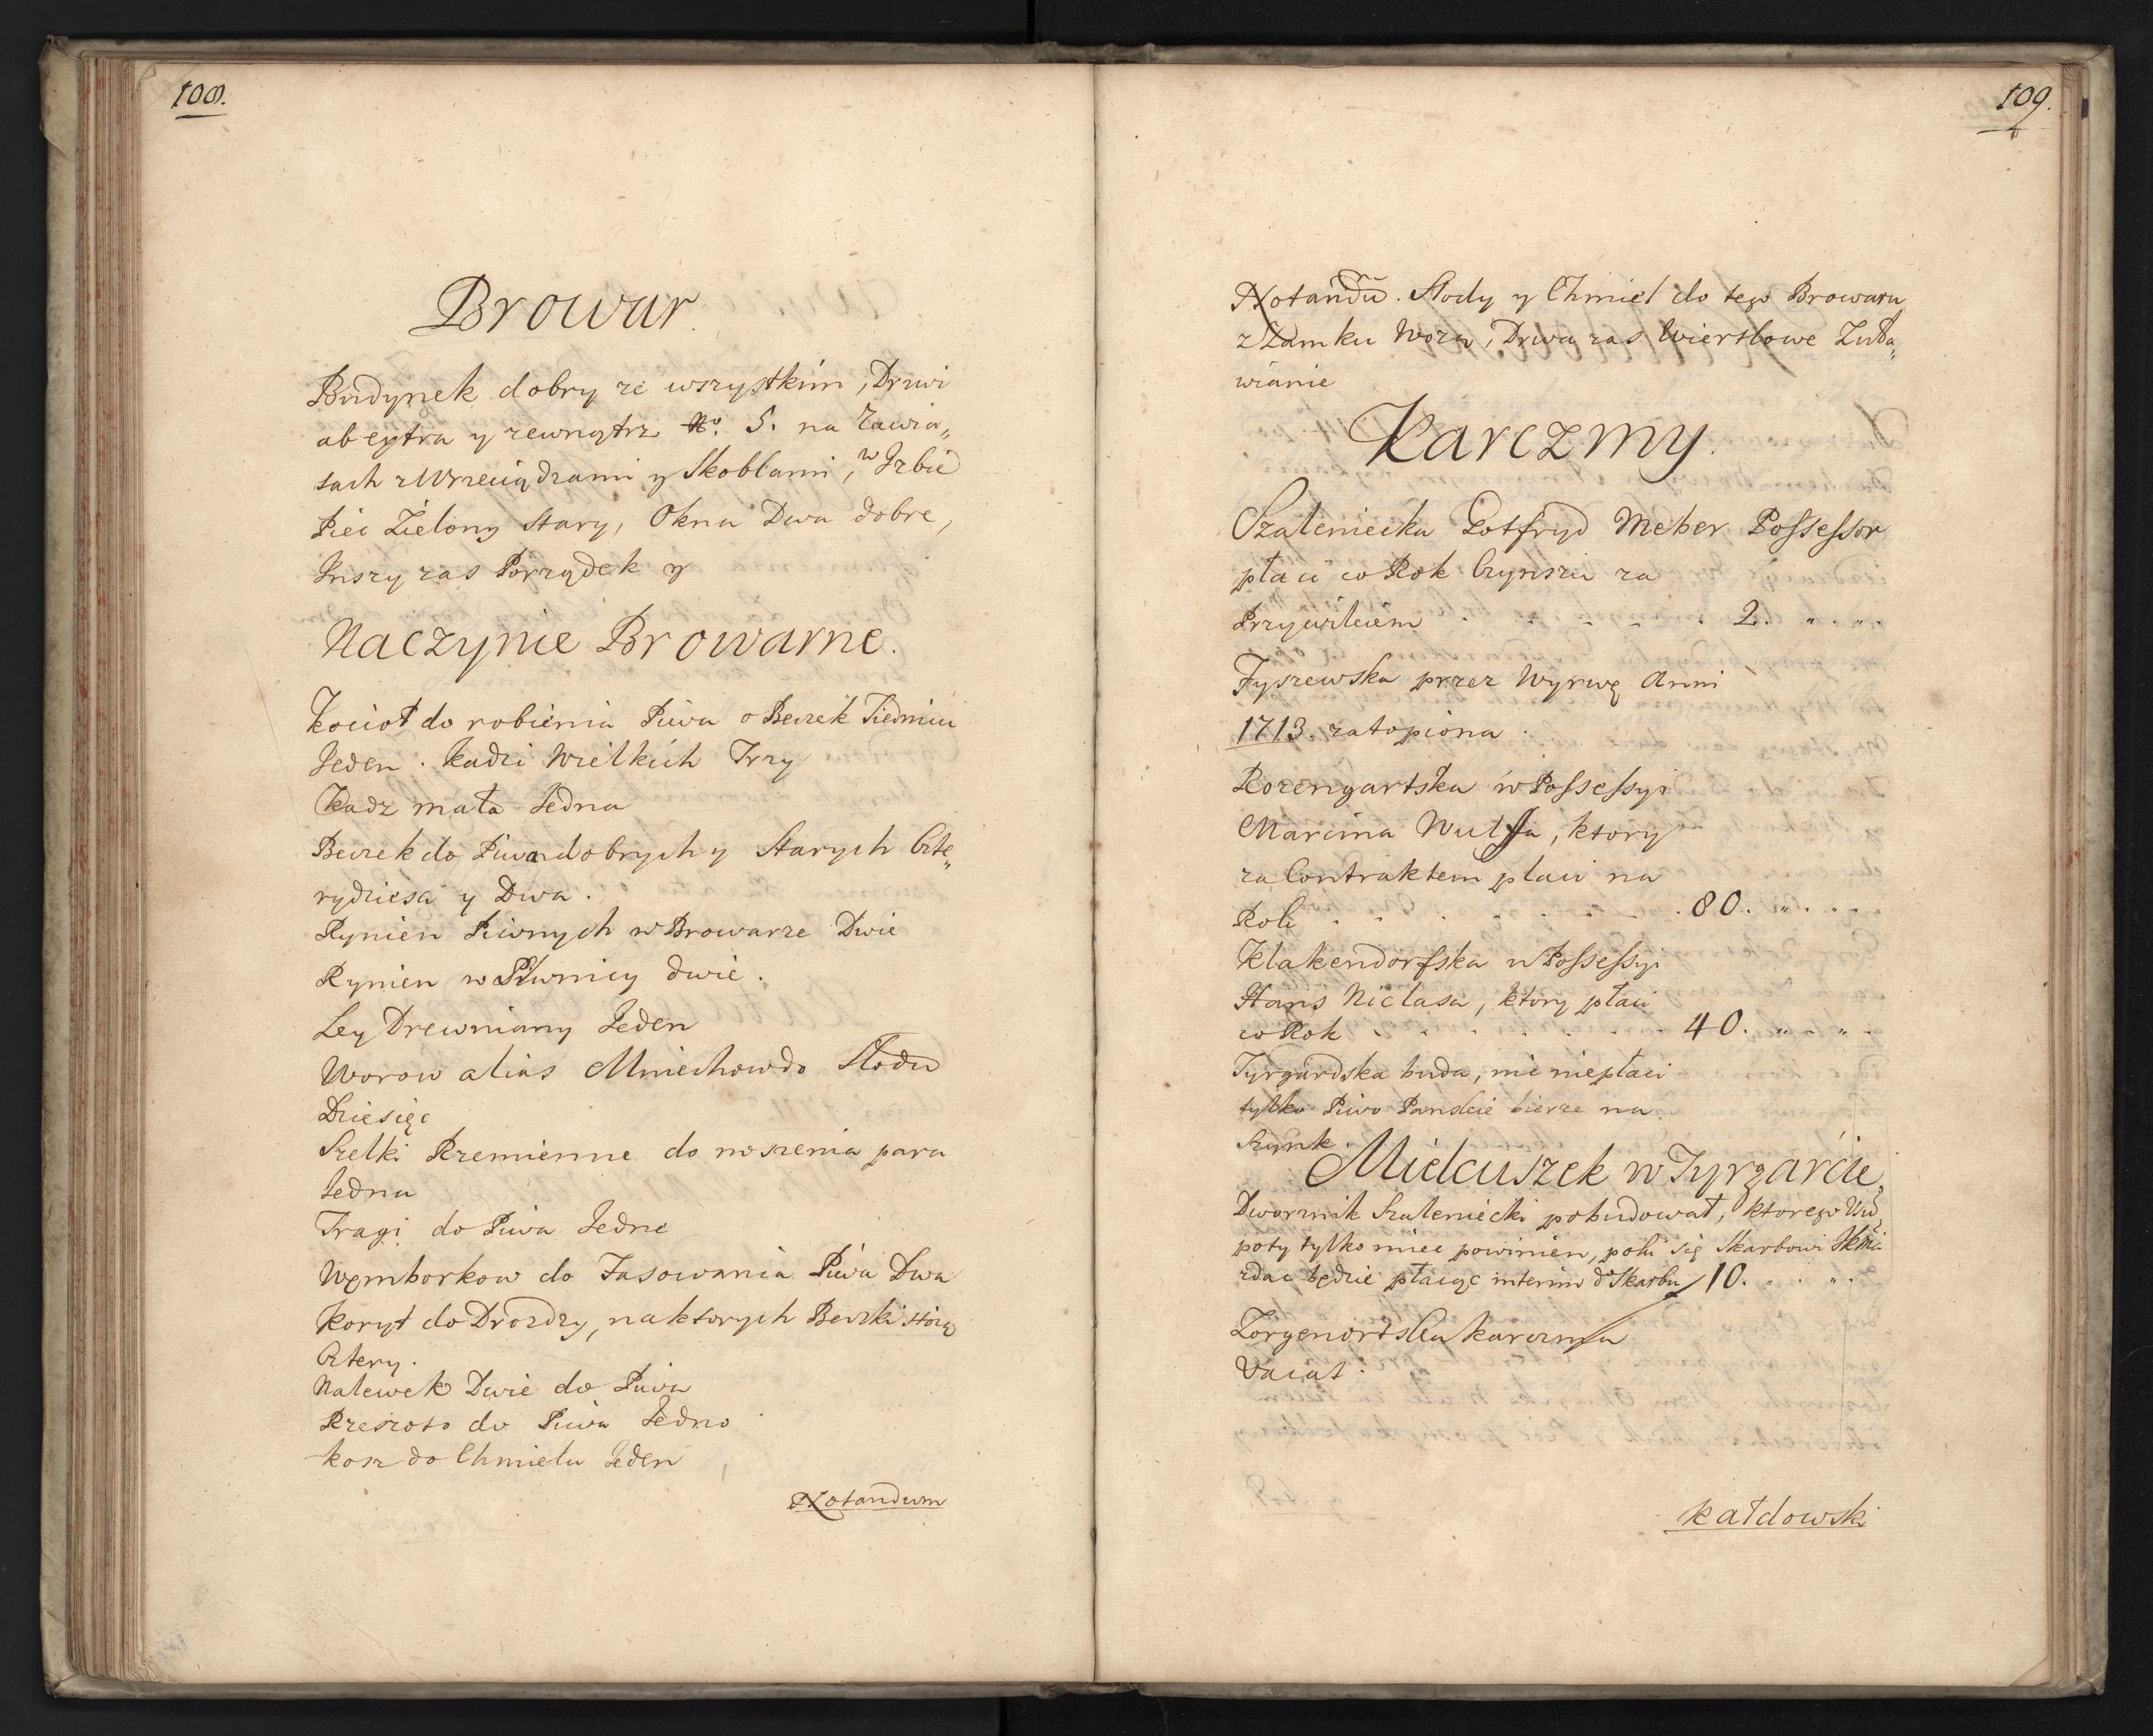 108.
Browar.
Budynek dobry ze wszystkim, Drzwi
ab extra y zewnątrz No. 5. na Zawia„
sach z Wrzeciądzami y Skoblami, w Izbie
Piec Zielony stary, Okna Dwa dobre,
Inszy zas Porządek y
Naczynie Browarne.
Kocioł do robienia Piwa o Beczek Siedmiu
Jeden. Kadzi Wielkich Trzy
Kadz mała Jedna
Beczek do Piwa dobrych y Starych Czte„
rydziesci y Dwa.
Rynien Piwnych w Browarze Dwie
Rynien w Piwnicy dwie.
Ley Drewniany Jeden
Worow alias Miechow do Słodu
Dziesięc
Szelki Rzemienne do noszenia para
Jedna
Tragi do Piwa Jedne
Węmborkow do Fasowania Piwa Dwa
Koryt do Drozdzy, na ktorych Beczki stoią
Cztery.
Nalewek Dwie do Piwa
Rzeszoto do Piwa Jedno
Kosz do Chmielu Jeden
Notandum
109.
Notandū. Słody y Chmiel do tego Browaru
z Zamku Wozą, Drwa zas Wiertlowe Zuła„
wianie
Karczmy.
Szaleniecka Gotfryd Meber Possessor
płaci co Rok Czynszu za
Przywileiem - - - - - 2. „ . „ .
Fyszewska przez Wyrwę Anni
1713. zatopiona.
Rozengartska w Possessyi
Marcina Wulffa, ktory
za Contraktem płaci na
Rok - - - - - - .80. „ . „ .
Klakendorfska w Possessyi
Hans Niclasa, ktory płaci
co Rok - - - - - - 40. „ . „ .
Tyrgardska buda, nic niepłaci
tylko Piwo Panskie bierze na
Szynk.
Mielcuszek w Tyrgarcie,
Dworznik Szaleniecki pobudował, ktorego
poty tylko miec powinien, poki się Skarbowi
zdac będzie płacąc interim do Skarbu 10. „ . „ .
Zorgenortska karczma
Vacat.
Kałdowski